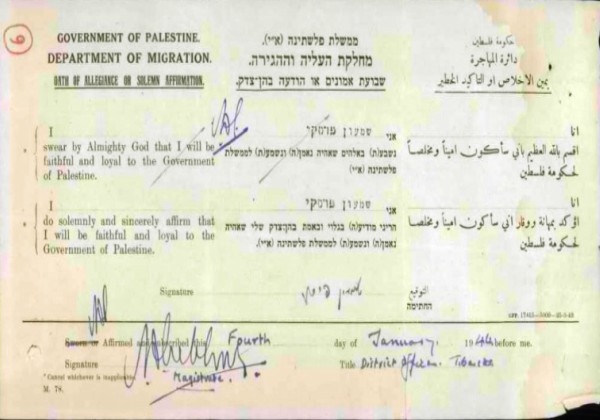 6
GOVERNMENT OF PALESTINE.
DEPARTMENT OF MIGRATION.
OATH OF ALLEGIANCE OR SOLEMN AFFIRMATION.
ממשלת פלשתינה (א״י).
מחלקת העליה וההגירה.
שבועת אמונים או הודעה בהן־צדק.
حكومة فلسطين
دائرة المهاجرة
يمين الاخلاص او التأكيد الخطير
I
swear by Almighty God that I will be
faithful and loyal to the Government
of Palestine.
אני שמעון פרסקי
נשבע(ת) באלהים שאהיה נאמן(ה) ונשמע(ת) לממשלת
פלשתינה (א״י)
انا
اقسم بالله العظيم باني سأكون اميناً ومخلصاً
لحكومة فلسطين
I
do solemnly and sincerely affirm that
I will be faithful and loyal to the
Government of Palestine.
אני שמעון פרסקי
הריני מודיע(ה) בגלוי ובאמת בהן־צדק שלי שאהיה
נאמן(ה) ונשמע(ת) לממשלת פלשתינה (א״י).
انا
اؤكد بمهانة ووقار اني سأكون اميناً ومخلصا
لحكومة فلسطين
Signature
التوقيع
החתימה
GPP. 17413—5000—23-3-43
Sworn or Affirmed and subscribed this Fourth day of January. 1944 before me.
Signature
Magistrate.
Title District Officer. Tiberias
* Cancel whichever is inapplicable.
M. 78.